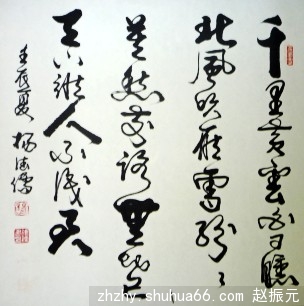 千里黄雲白日曛
北風吹雁雪紛紛
莫愁前路無知己
天下誰人不識君
壬辰夏 楊
zhzhy.shuhua66.com 赵振元